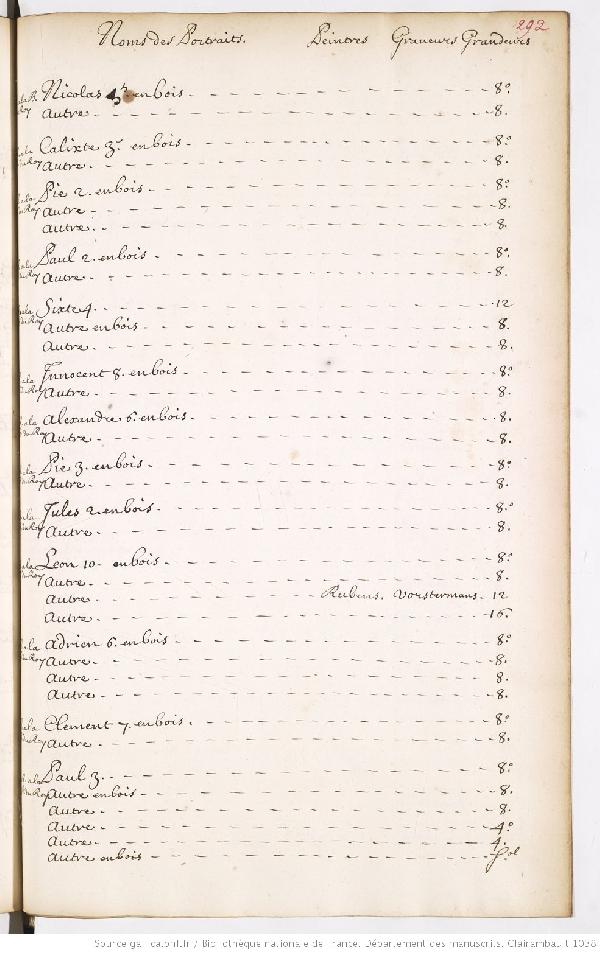 292
Noms des Portraits. Peintres Graueurs Grandeurs
Nicolas en bois 8°
Autre 8.
Calixte 3e en bois 8°
Autre 8.
Pie 2. en bois 8°
Autre 8.
Autre 8.
Paul 2. en bois 8°
Autre 8.
Sixte 4. 12
Autre en bois 8.
Autre 8.
Innocent 8. en bois 8°
Autre 8.
Alexandre 6. en bois 8.
Autre 8.
Pie 3. en bois 8°
Autre 8.
Jules 2. en bois 8.°
Autre 8.
Leon 10. en bois 8°
Autre 8.
Autre Rubens. Vorstermans. 12
Autre 16.
Adrien 6. en bois 8°
Autre 8.
Autre 8.
Autre 8.
Clement 7. en bois. 8°
Autre 8.
Paul 3. 8°
Autre en bois 8.
Autre 8.
Autre 4°
Autre 4.
Autre en bois fol
Source gallica.bnf.fr / Bibliothèque nationale de France. Département des manuscrits. Clairambault 1038